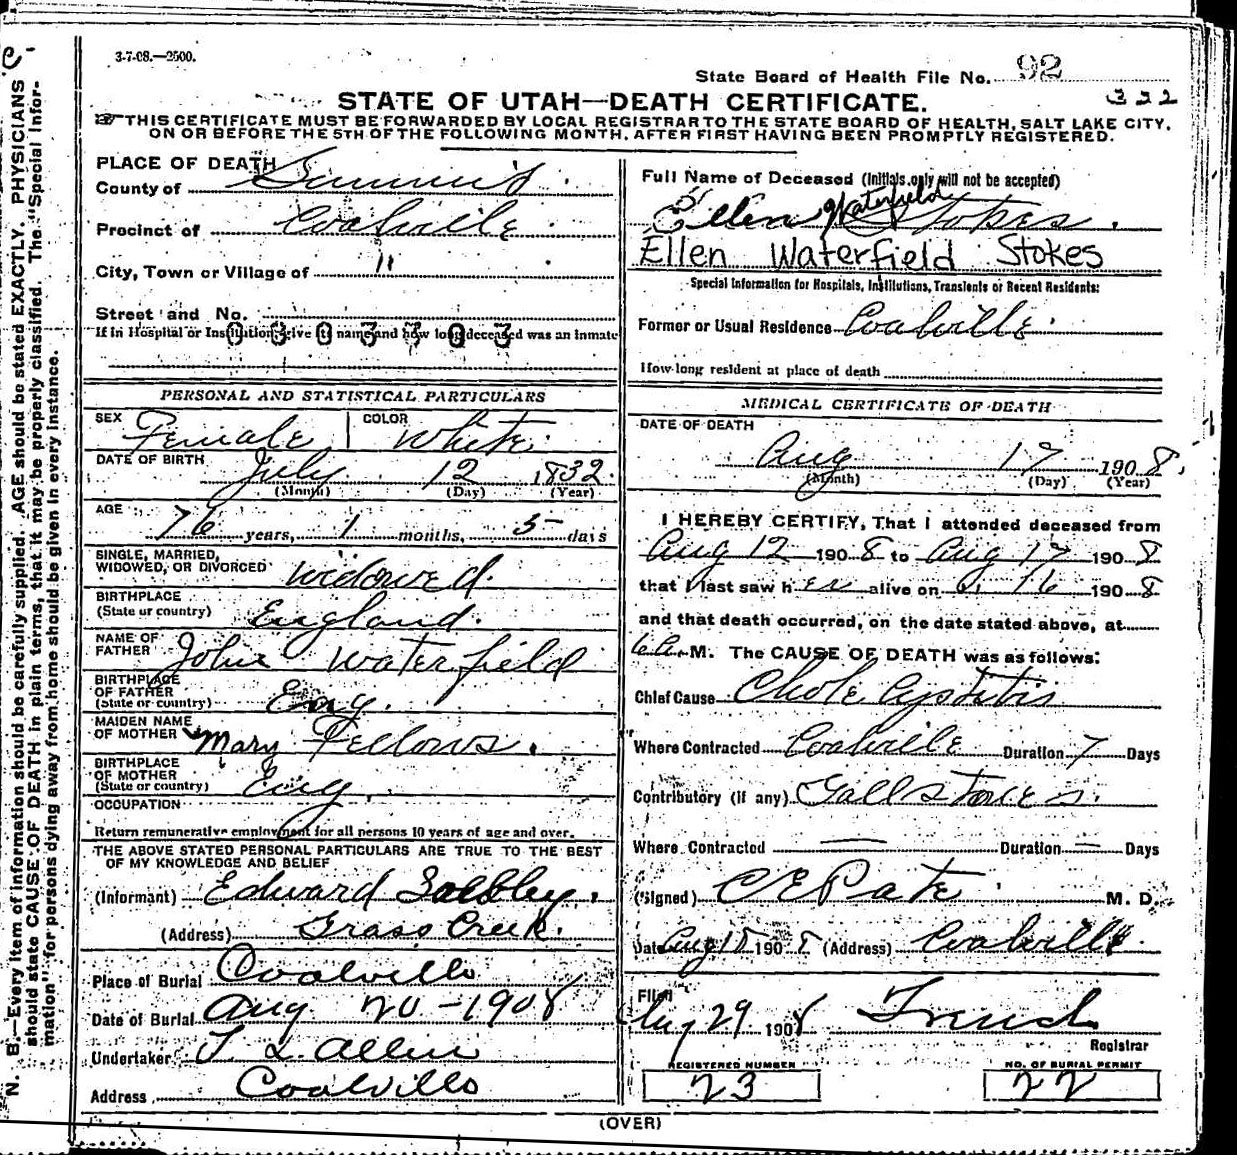 3-7-08.—2500.
State Board of Health File No. 92
322
STATE OF UTAH—DEATH CERTIFICATE.
☞THIS CERTIFICATE MUST BE FORWARDED BY LOCAL REGISTRAR TO THE STATE BOARD OF HEALTH, SALT LAKE CITY,
ON OR BEFORE THE 5TH OF THE FOLLOWING MONTH, AFTER FIRST HAVING BEEN PROMPTLY REGISTERED.
N. B.—Every item of information should be carefully supplied. AGE should be stated EXACTLY. PHYSICIANS
should state CAUSE OF DEATH in plain terms, that it may be properly classified. The "Special Infor-
mation" for persons dying away from home should be given in every instance.
PLACE OF DEATH
County of Summit
Precinct of Coalville
City, Town or Village of "
Street and No.
If in Hospital or Institution, give its name and how long deceased was an inmate
PERSONAL AND STATISTICAL PARTICULARS
SEX Female COLOR White
DATE OF BIRTH July 12 1832
(Month) (Day) (Year)
AGE 76 years, 1 months, 5 days
SINGLE, MARRIED,
WIDOWED, OR DIVORCED Widowed.
BIRTHPLACE
(State or country) England.
NAME OF
FATHER John Waterfield
BIRTHPLACE
OF FATHER
(State or country) Eng.
MAIDEN NAME
OF MOTHER Mary Fellows.
BIRTHPLACE
OF MOTHER
(State or country) Eng.
OCCUPATION
Return remunerative employment for all persons 10 years of age and over.
THE ABOVE STATED PERSONAL PARTICULARS ARE TRUE TO THE BEST
OF MY KNOWLEDGE AND BELIEF
(Informant) Edward
(Address) Grass Creek.
Place of Burial Coalville
Date of Burial Aug. 20 - 1908
Undertaker T. L. Allen
Address Coalville
Full Name of Deceased (Initials only will not be accepted)
Ellen Waterfield Stokes.
Ellen Waterfield Stokes
Special Information for Hospitals, Institutions, Transients or Recent Residents:
Former or Usual Residence Coalville.
How long resident at place of death
MEDICAL CERTIFICATE OF DEATH
DATE OF DEATH
Aug 17 1908.
(Month) (Day) (Year)
I HEREBY CERTIFY, That I attended deceased from
Aug 12 1908 to Aug 17 1908
that I last saw her alive on 16 1908
and that death occurred, on the date stated above, at
6 A. M. The CAUSE OF DEATH was as follows:
Chief Cause Chole Cystitis
Where Contracted Coalville Duration 7 Days
Contributory (if any) Gallstones.
Where Contracted — Duration — Days
(Signed) C E Pate M. D.
Date Aug 18 1908 (Address) Coalville.
Filed
Aug 29 1908
Registrar
REGISTERED NUMBER
23
NO. OF BURIAL PERMIT
22
(OVER)